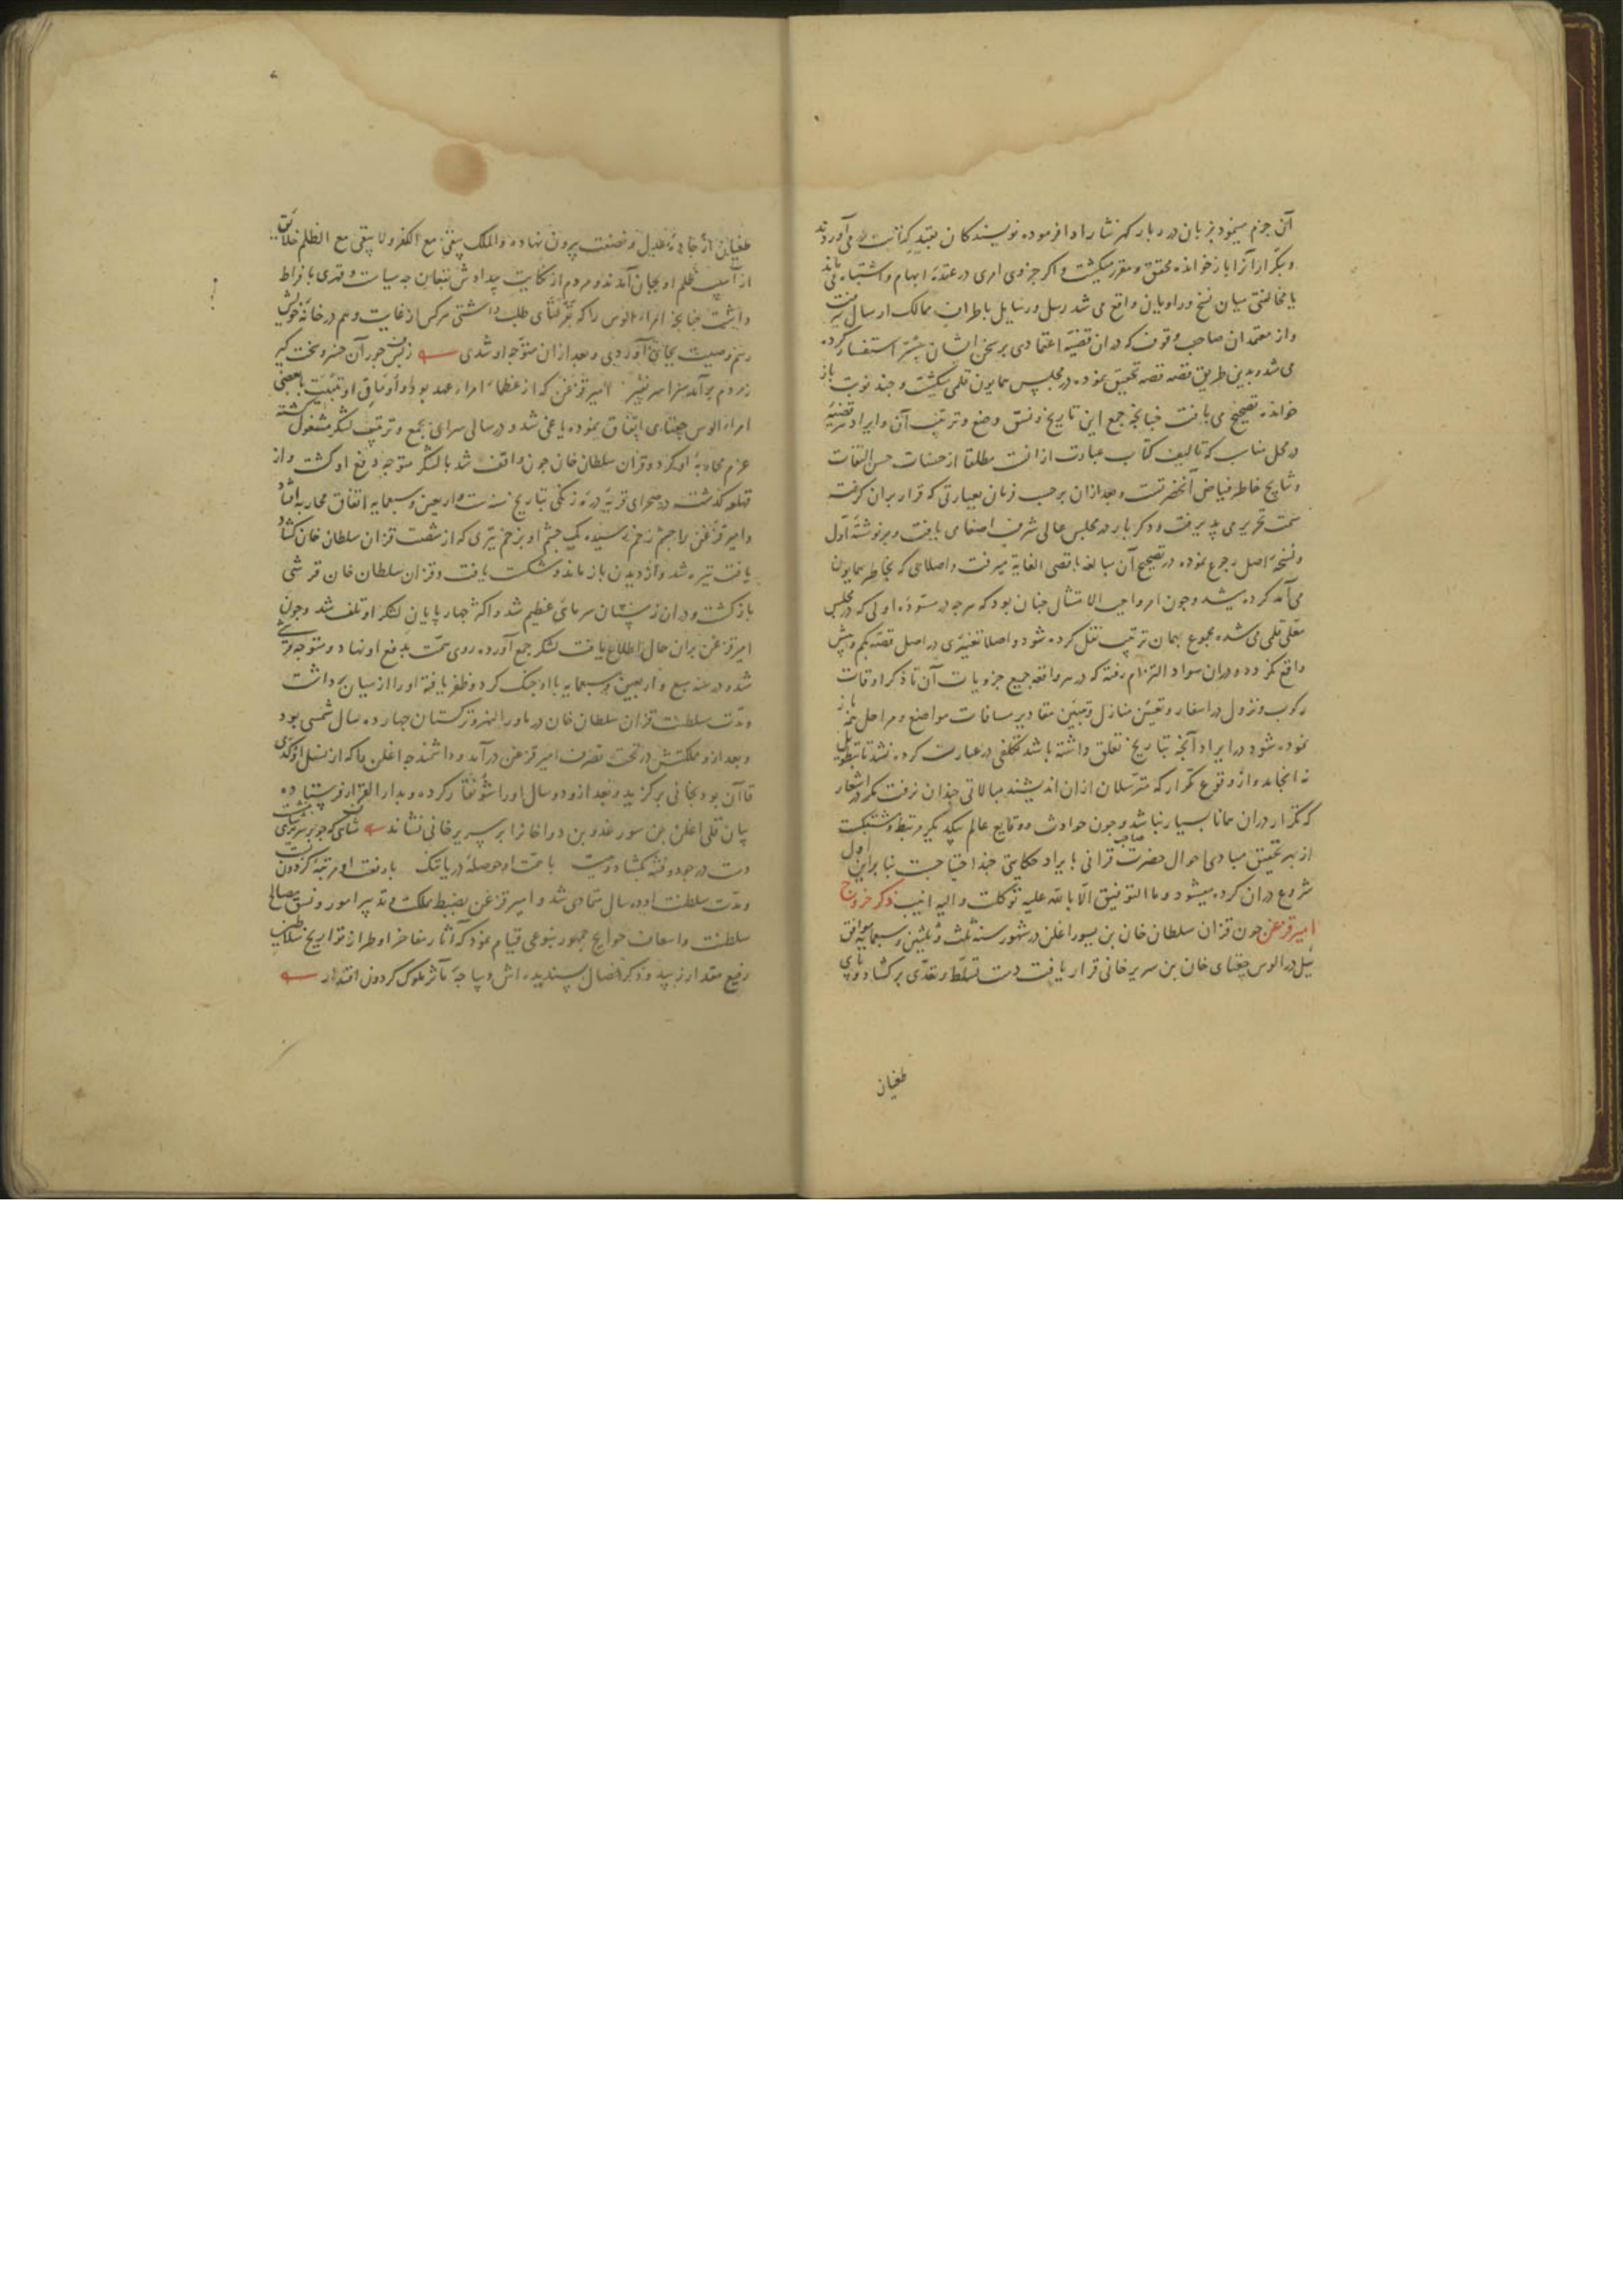 آن جزم مینمود بزبان درربار کهر نثار ادا فرموده نویسندکان بقید کتابت در می آوردند
و بتکرار آنرا باز خوانده محقق و مقرر میکشت و اکر جزوی امری در عقدهٔ ابهام و اشتباه می ماند
یا مخالفتی میان نسخ و راویان واقع می شد رسل و رسایل باطراف ممالک ارسال میرفت
و از معتمدان صاحب وقوف که در ان قضیه اعتمادی بر سخن ایشان بیشتر استفسار کرده
می شد و بدین طریق قصه قصه تحقیق نموده در مجلس همایون قلمی میکشت و چند نوبت باز
خوانده تصحیح می یافت چنانچه جمع این تاریخ و نسق وضع و ترتیب آن و ایراد هر قضیه
در محل مناسب که تالیف کتاب عبارت از انست مطلقا از حسنات حسن التفات
و نتایج خاطر فیاض آنحضرتست و بعد ازان بر حسب فرمان بعبارتی که قرار بران کرفته
سمت تحریر می پذیرفت و دکر بار در مجلس عالی شرف اصغا می یافت و بر نوشته اول
و نسخهٔ اصل رجوع نموده در تصحیح آن مبالغه باقصی الغایة میرفت و اصلاحی که بخاطر همایون
می آمد کرده میشد و چون امر واجب الامتثال چنان بود که هرچه در مسودهٔ اولی که در مجلس
معلی قلمی می شده مجموع بهمان ترتیب نقل کرده شود و اصلا تغییری در اصل قصه بکم و بیش
واقع نکردد و در ان سواد التزام رفته که در هر واقعه جمیع جزویات آن تا ذکر اوقات
رکوب و نزول در اسفار و تعیین منازل و تبیین مقادیر مسافات مواضع و مراحل باز
نموده شود در ایراد آنچه بتاریخ تعلق داشته باشد تکلفی در عبارت کرده نشد تا بتطویل
نه انجامد و از وقوع تکرار که مترسلان ازان اندیشند مبالاتی چندان نرفت مکر در اشعار
که تکرار در ان همانا بسیار نباشد و چون حوادث و وقایع عالم بیکدیکر مرتبط و مشتبکست
از بهر تحقیق مبادی احوال حضرت صاحب قرانی بایراد حکایتی چند احتیاجست بنا براین اول
شروع در ان کرده میشود و ما التوفیق الا بالله علیه توکلت و الیه انیب ذکر خروج
امیر قزغن چون قزان سلطان خان بن یسور اغلن در شهور سنه ثلث و ثلثین و سبعمایه موافق
ئیل در الوس چغتای خان بن سریر خانی قرار یافت دست تسلط و تعدی برکشاد و پای
طغیان
طغیان از جادهٔ عدل و نصفت بیرون نهاده و الملک یبقی مع الکفر و لا یبقی مع الظلم خلایق
از آسیب ظلم او بجان آمدند و مردم از نکایت بیدادش بفغان چه سیاست و قهری بافراط
داشت چنانچه امراء الوس را که بقرلتای طلب داشتی هرکس از غایت وهم در خانهٔ خویش
رسم وصیت بجای آوردی و بعد ازان متوجه او شدی ز بس جور آن خسرو سخت کیر
ز مردم بر آمد سراسر نفیر امیر قزغن که از عظماء امراء عهد بود باتفاق بعضی
امراء الوس چغتای اتفاق نموده یاغی شد و در سالی سرای بجمع و ترتیب لشکر مشغول کشته
عزم محاربهٔ او کرد و قزان سلطان خان چون واقف شد با لشکر متوجه دفع او کشت و از
قهلغه کذشته در صحرای قریهٔ دره زنکی بتاریخ سنه ست و اربعین و سبعمایه اتفاق محاربه افتاد
و امیر قزغن را چشم زخم رسیده یک چشم او بزخم تیری که از شصت قزان سلطان خان کشاد
یافت تیره شد و از دیدن باز ماند و شکست یافت و قزان سلطان خان قرشی
بازکشت و در ان زمستان سرمای عظیم شد و اکثر چهار پایان لشکر او تلف شد و چون
امیر قزغن بران حال اطلاع یافت لشکر جمع آورده روی همت بدفع او نهاد و متوجه قرشی
شد و در سنه سبع و اربعین و سبعمایه با او جنک کرد و ظفر یافته او را از میان برداشت
و مدت سلطنت قزان سلطان خان در ماوراء النهر و ترکستان چهارده سال شمسی بود
و بعد ازو مملکتش در تحت تصرف امیر قزغن درآمد و دانشمندجه اغلن را که از نسل اوکدای
قاآن بود بخانی برکزید و بعد از دو سال او را شنقار کرده و بدار القرار فرستاده
بیان قلی اغلن بن سورغدو بن دواخان را بر سریر خانی نشاند شاهی که چو بر سریر شاهی بنشست
دست در جود و فتنه بکشاد و ببست با همت او حوصلهٔ دریا تنک با رفعت او مرتبهٔ کردون پست
و مدت سلطنت او ده سال متمادی شد و امیر قزغن بضبط مملکت و تدبیر امور و نسق مصالح
سلطنت و اسعاف حوایج جمهور بنوعی قیام نمود که آثار مفاخر او طراز تواریخ سلاطین
رفیع مقدار زیبد و ذکر افعال پسندیده اش دیباجهٔ مآثر ملوک کردون اقتدار